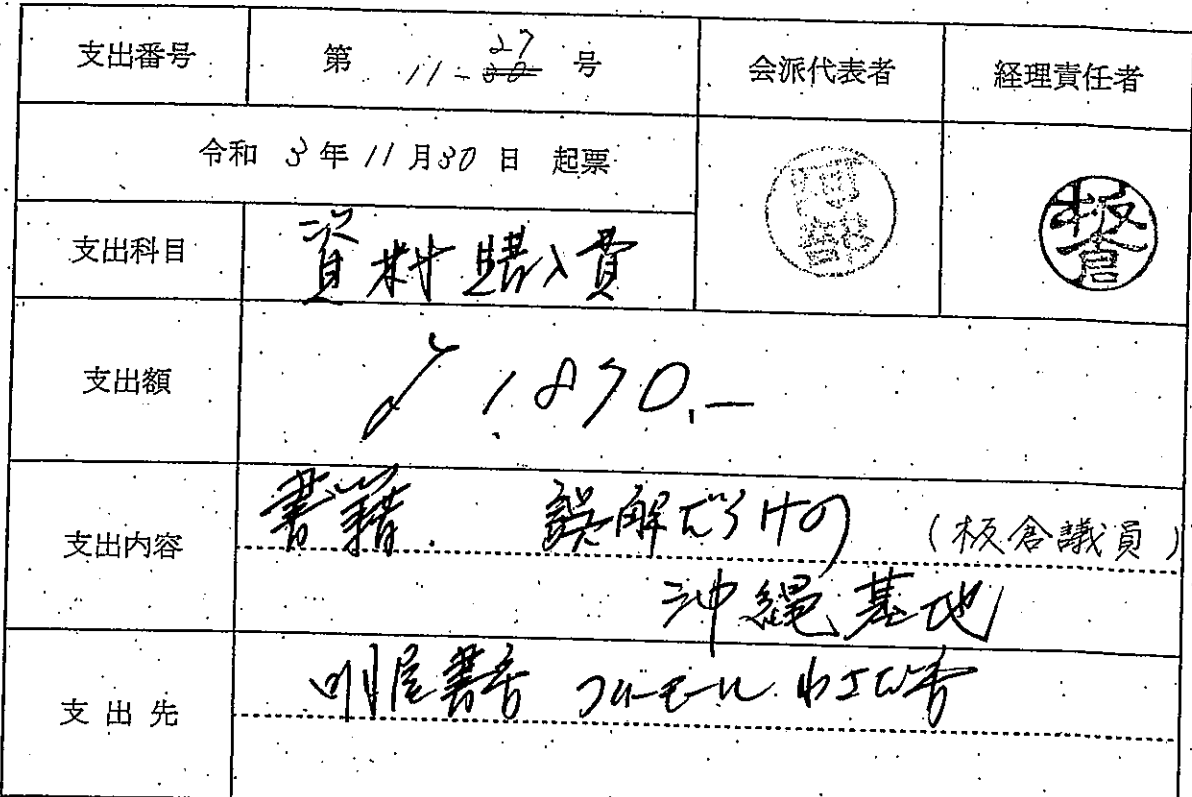 支出番号 第 11-27 号 会派代表者 経理責任者
令和 3 年 11 月 30 日 起票
阿部 板倉
支出科目 資料購入費
支出額 ¥1,870.-
支出内容 書籍. 誤解だらけの (板倉議員)
沖縄基地
支出先 明屋書店 フジモール